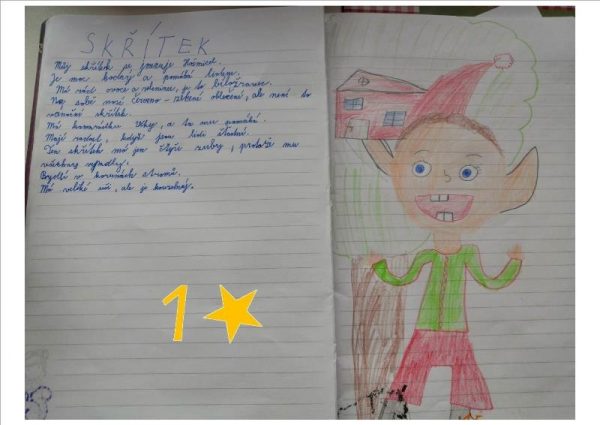 SKŘÍTEK
Můj skřítek se jmenuje
Je moc hodný a pomáhá lidem.
Má rád ovoce a zeleninu, je to býložravec.
Na sobě nosí červeno-zelené oblečení, ale není to
vánoční skřítek.
Má kamarádku, a ta mu pomáhá.
Mají radost, když jsou lidi šťastní.
Ten skřítek má jen čtyři zuby, protože mu
všechny vypadly.
Bydlí v korunách stromů.
Má veliké uši, ale je kouzelný.
1